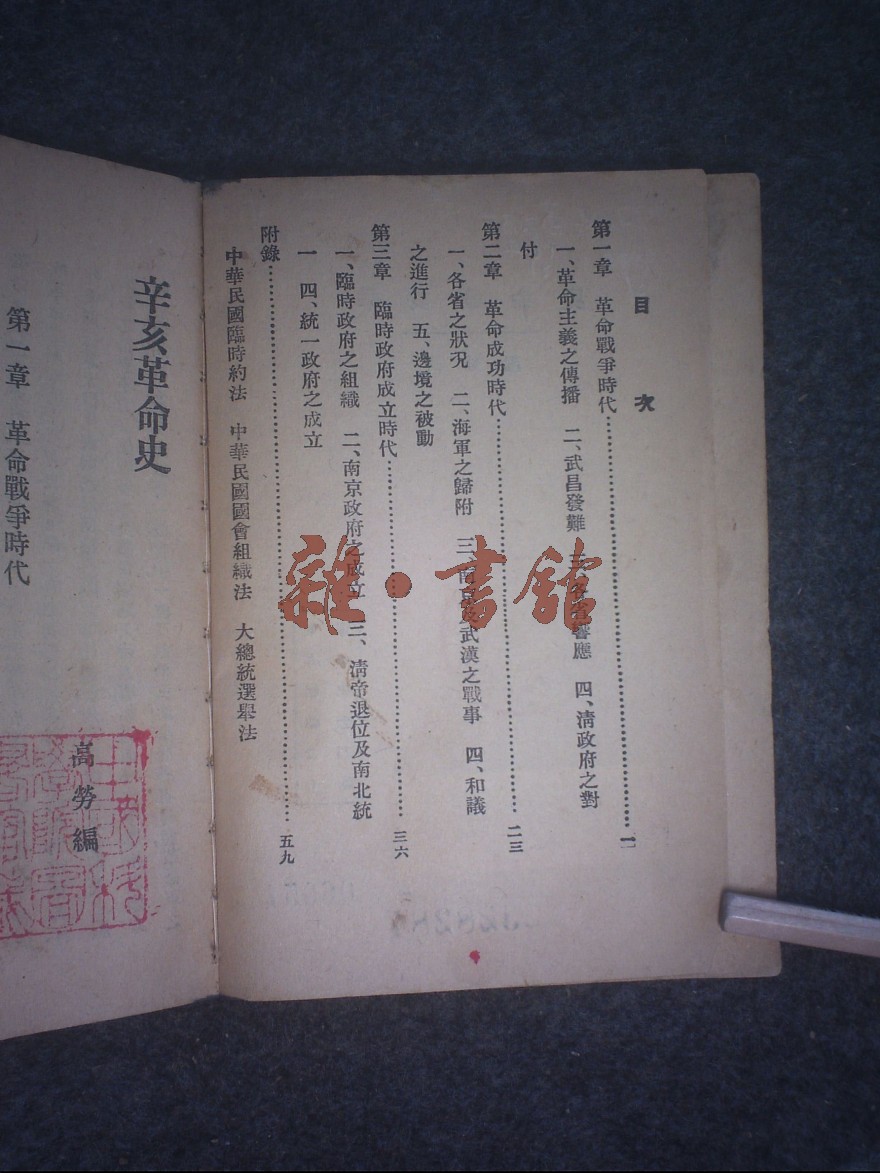 目次
第一章　革命戰爭時代……………………一
一、革命主義之傳播　二、武昌發難　三、各省響應　四、清政府之對
付
第二章　革命成功時代……………………二三
一、各省之狀況　二、海軍之歸附　三、南京及武漢之戰事　四、和議
之進行　五、邊境之被動
第三章　臨時政府成立時代……………………三六
一、臨時政府之組織　二、南京政府之成立　三、清帝退位及南北統
一　四、統一政府之成立
附錄……………………五九
中華民國臨時約法　中華民國國會組織法　大總統選舉法
辛亥革命史
高勞編
第一章　革命戰爭時代
雜·書館